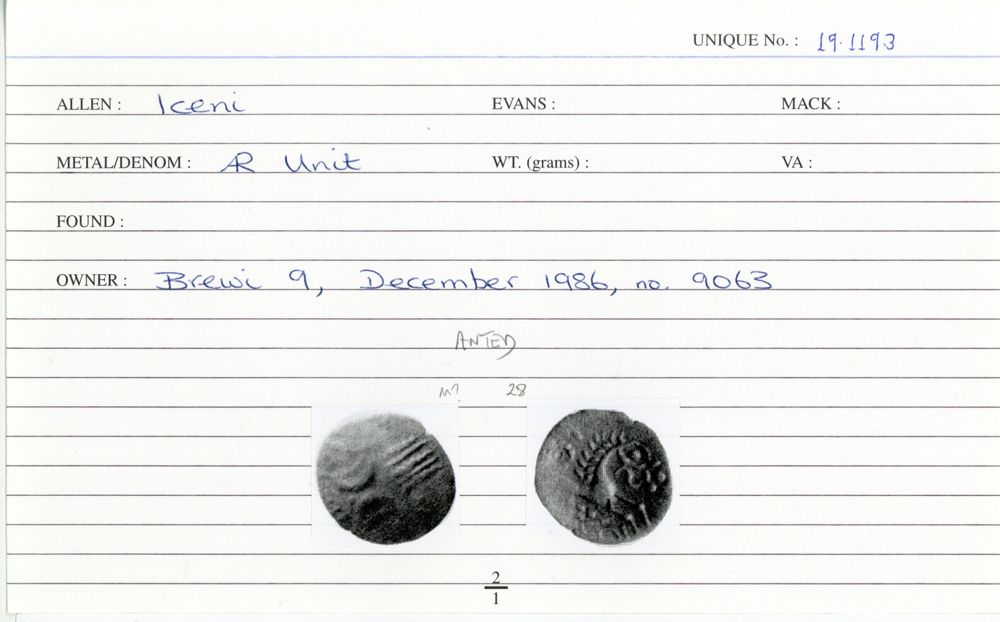 UNIQUE No. : 19.1193
ALLEN : Iceni EVANS : MACK :
METAL/DENOM : AR Unit WT. (grams) : VA :
FOUND :
OWNER : Brewi 9, December 1986, no. 9063
ANTED
M? 28
2
1